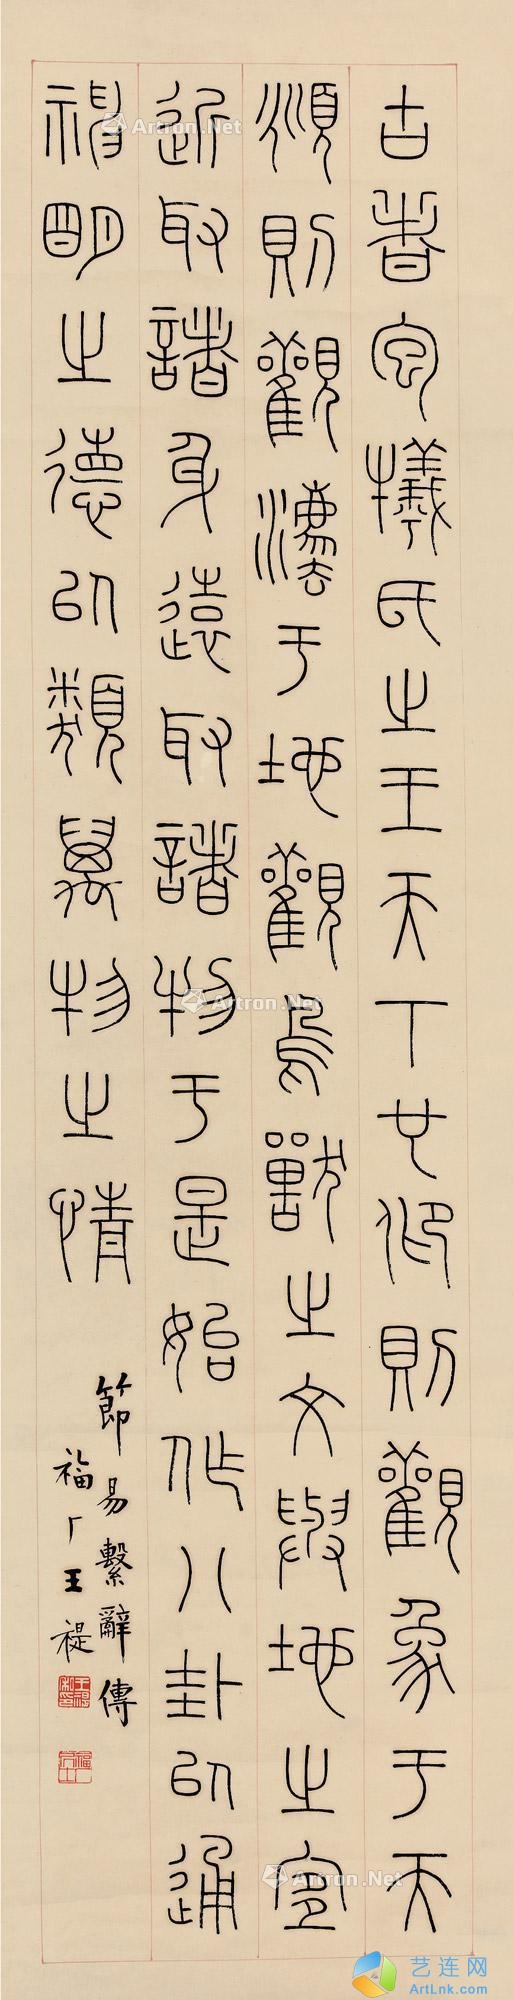 古者包犧氏之王天下也仰則觀象于天
頫則觀灋于地觀鳥獸之文與地之宜
近取諸身遠取諸物于是始作八卦㠯通
神明之德㠯類萬物之情
節易繫辭傳
福厂王禔
王禔私印
Artron.Net
Artron.Net
Artron.Net
Artron.Net
艺连网
ArtLnk.com